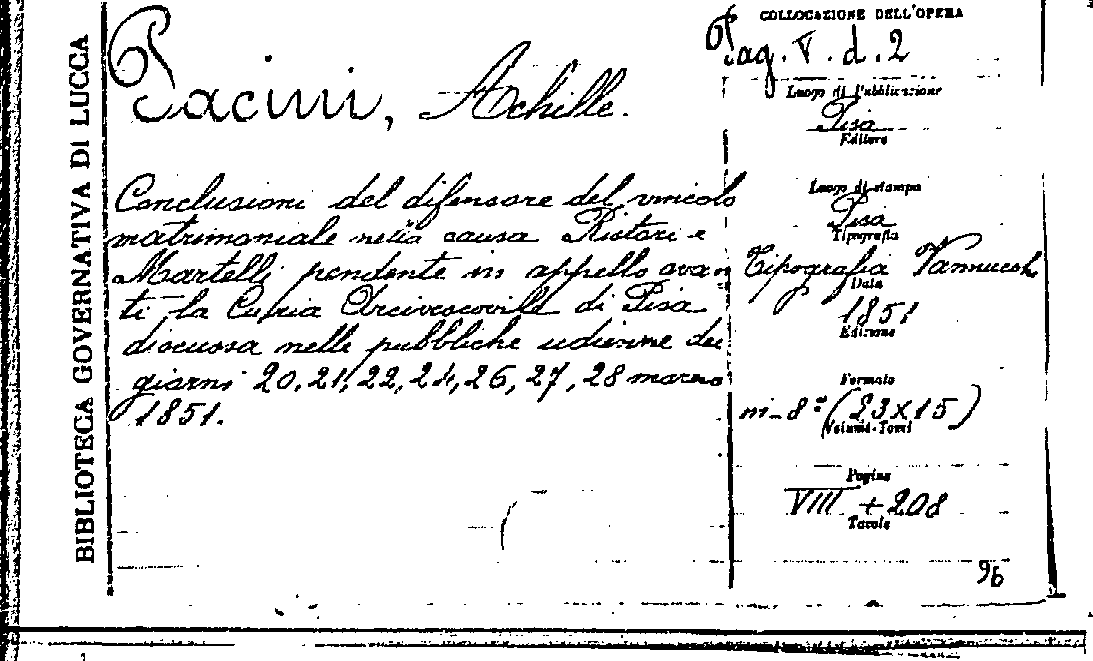 BIBLIOTECA GOVERNATIVA DI LUCCA
Pacini, Achille.
Conclusioni del difensore del vincolo
matrimoniale nella causa Ristori e
Martelli pendente in appello avan
ti la Curia Arcivescovile di Pisa
discussa nelle pubbliche udienze dei
giorni 20, 21, 22, 24, 26, 27, 28 marzo
1851.
COLLOCAZIONE DELL'OPERA
Pag. V. d. 2
Luogo di Pubblicazione
Pisa
Editore
Luogo di stampa
Pisa
Tipografia
Tipografia Vannucchi
Data
1851
Edizione
Formato
in-8º (23x15)
Volumi-Tomi
Pagine
VIII + 208
Tavole
96